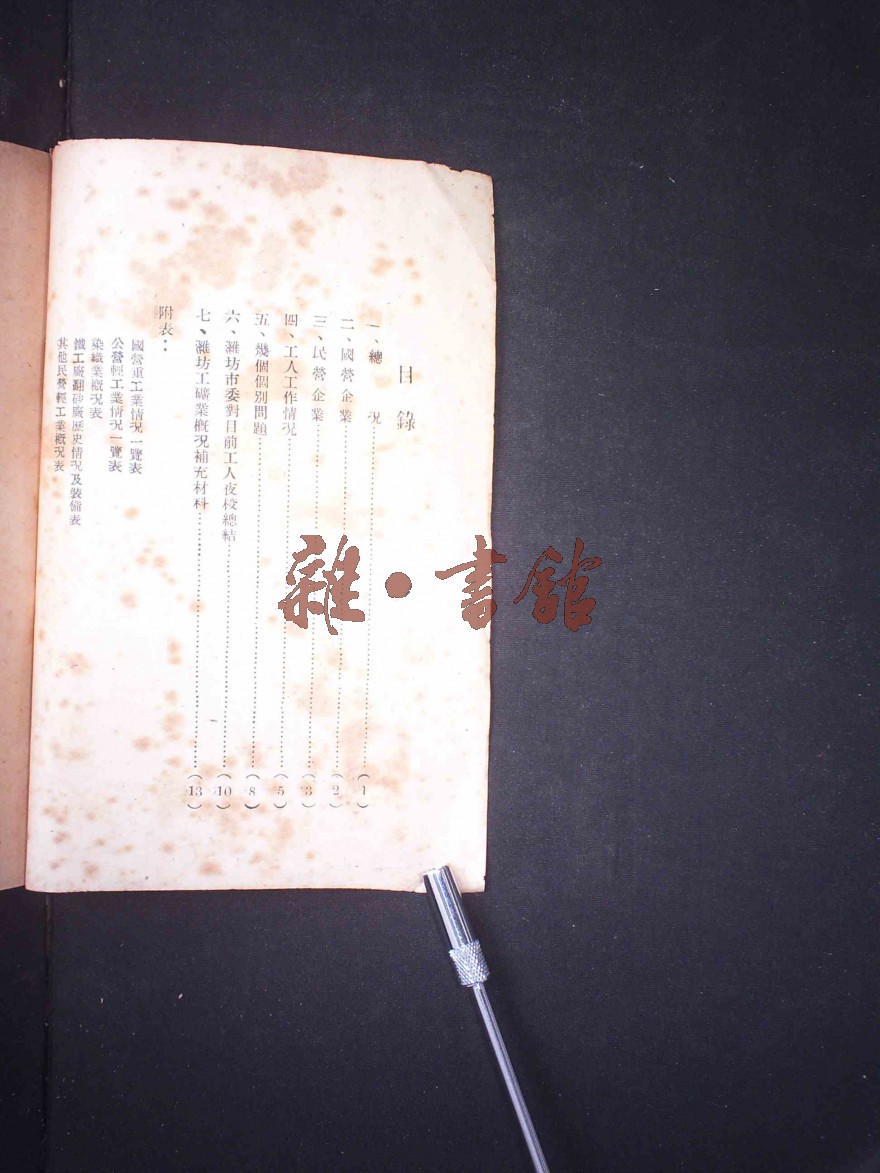 目錄
一、總況……(1)
二、國營企業……(2)
三、民營企業……(3)
四、工人工作情況……(5)
五、幾個個別問題……(8)
六、濰坊市委對目前工人夜校總結……(10)
七、濰坊工礦業概況補充材料……(13)
附表：
國營重工業情況一覽表
公營輕工業情況一覽表
染織業概況表
鐵工廠翻砂廠歷史情況及裝備表
其他民營輕工業概況表
雜·書館